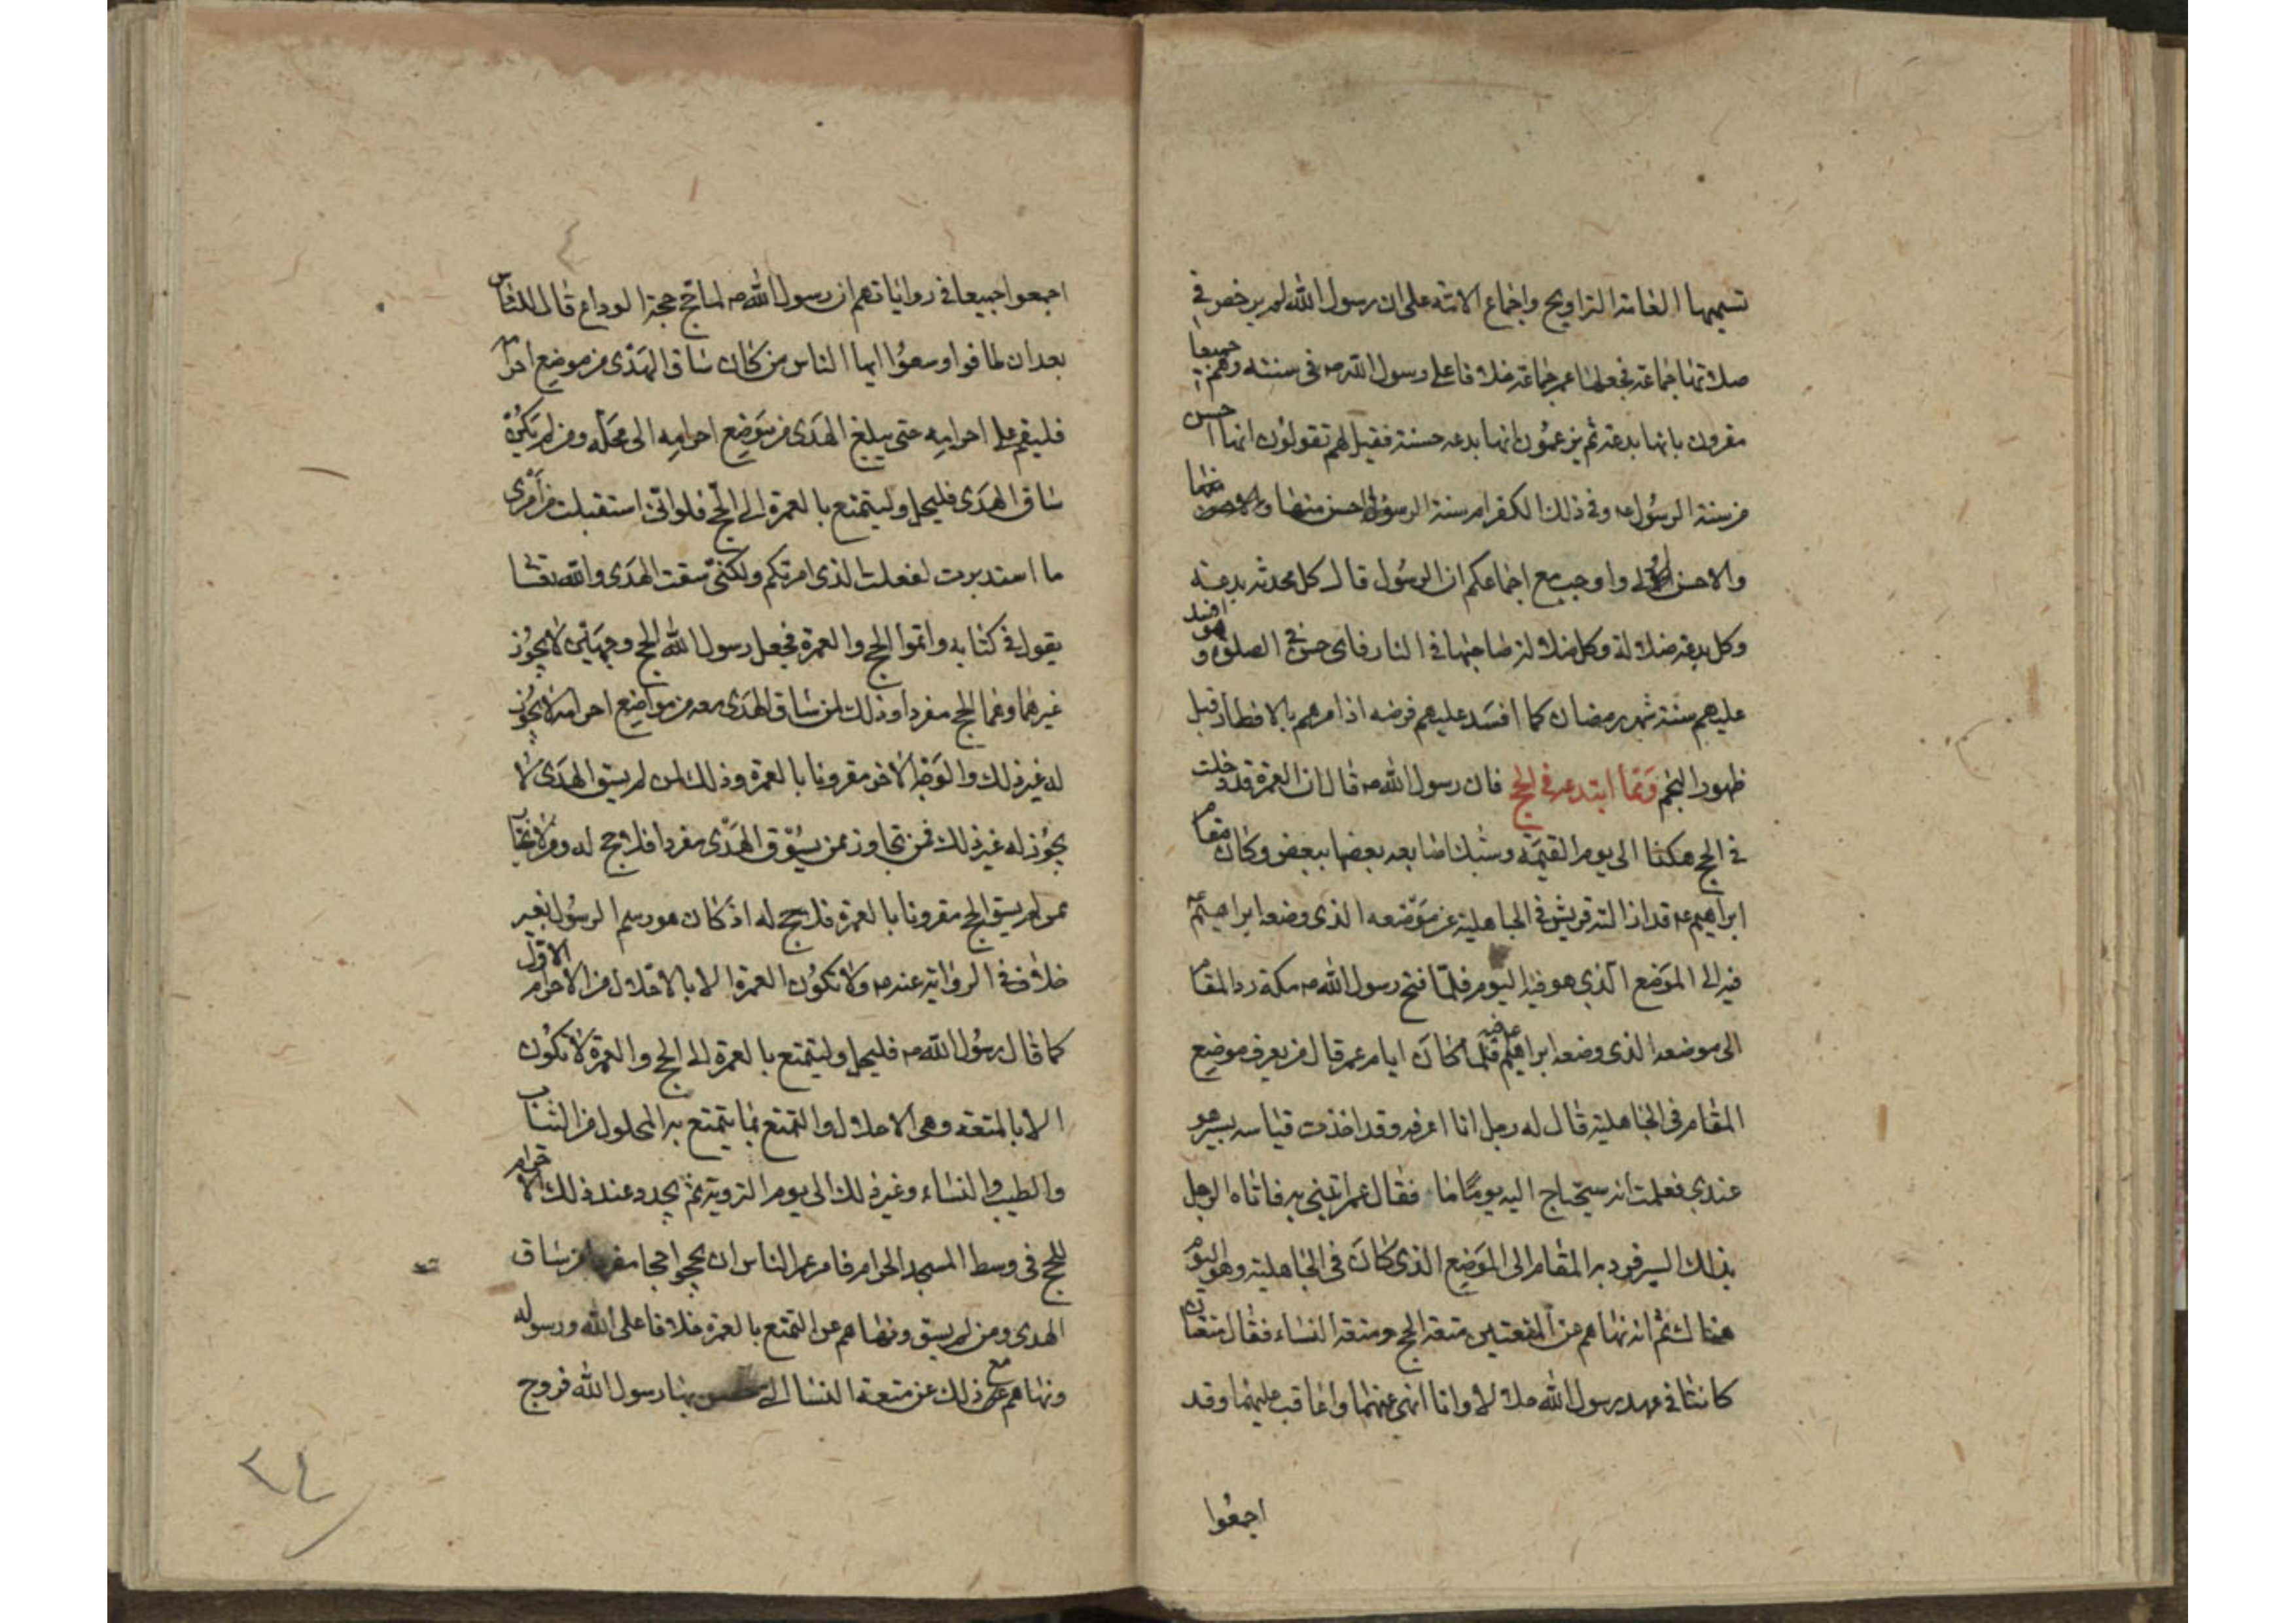 تسميها العامة التراويح واجماع الامة على ان رسول الله لم يرخص في
صلاتها جماعة فجعلها عمر جماعة خلافا على رسول الله ص في سنته وهم جميعا
مقرون بانها بدعة ثم يزعمون انها بدعه حسنة فقيل لهم تقولون انها احسن
من سنة الرسول ص وفي ذلك الكفر ام سنة الرسول احسن منها
والاحسن اولى واوجب مع اجماعكم ان الرسول قال كل محدثه بدعة
وكل بدعة ضلالة وكل ضلالة صاحبها في النار فاى حسن في الصلوة و هو افسد
عليهم سنة شهر رمضان كما افسد عليهم فرضه اذا مرهم بالافطار قبل
ظهور النجم ومما ابتدعه في الحج فان رسول الله ص قال ان العمرة قد دخلت
في الحج هكذا الى يوم القيمة وشبك اصابعه بعضها ببعض وكان مقام
ابراهيم ع قد ازالته قريش في الجاهلية عن موضعه الذى وضعه ابراهيم ع
فيه الى الموضع الذي هو فيه اليوم فلما فتح رسول الله ص مكة رد المقام
الى موضعه الذى وضعه ابراهيم ع فيه فلما كان ايام عمر قال من يعرف موضع
المقام في الجاهلية قال له رجل انا اعرفه وقد اخذت قياسه بسير هو
عندي فعلمت انه سيحتاج اليه يوما ما فقال عمر اتيني به فاتاه الرجل
بذلك السير فرد به المقام الى الموضع الذى كان في الجاهلية وهو اليوم
هناك ثم انه نهاهم عن المتعتين متعة الحج ومتعة النساء فقال متعتان
كانتا في عهد رسول الله حلالا وانا انهى عنهما واعاقب عليهما وقد
اجمعوا
اجمعوا جميعا في رواياتهم ان رسول الله ص لما حج حجة الوداع قال للناس
بعد ان طافوا وسعوا ايها الناس من كان ساق الهدى من موضع احرامه
فليقم على احرامه حتى يبلغ الهدى من موضع احرامه الى محله ومن لم يكن
ساق الهدى فليحل وليتمتع بالعمرة الى الحج فلو انى استقبلت من امرى
ما استدبرت لفعلت الذى امرتكم ولكنى سقت الهدى والله تعالى
يقول في كتابه واتموا الحج والعمرة فجعل رسول الله الحج وجهين لا يجوز
غيرهما وهما الحج مفردا وذلك لمن ساق الهدى معه من مواضع احرامه لا يجوز
له غير ذلك والوجه الاخر مقرونا بالعمرة وذلك لمن لم يسق الهدى لا
يجوز له غير ذلك فمن تجاوز ممن يسوق الهدى مفردا فلا حج له ومن
لم يسق الحج مقرونا بالعمرة فلا حج له اذ كان هو رسم الرسول بغير
خلاف في الرواية عنه ص ولا تكون العمرة الا بالاحلال من الاحرام الاول
كما قال رسول الله ص فليحل وليتمتع بالعمرة الى الحج والعمرة لا تكون
الا بالمتعة وهي الاحلال والتمتع بما يتمتع به المحلول من الثياب
والطيب والنساء وغير ذلك الى يوم التروية ثم يجدد عند ذلك الاحرام
للحج في وسط المسجد الحرام فامر عمر الناس ان يحجوا حجا مفردا من ساق
الهدى ومن لم يسق ونهاهم عن التمتع بالعمرة خلافا على الله ورسوله
ونهاهم مع ذلك عن متعة النسا التى بها رسول الله فروج